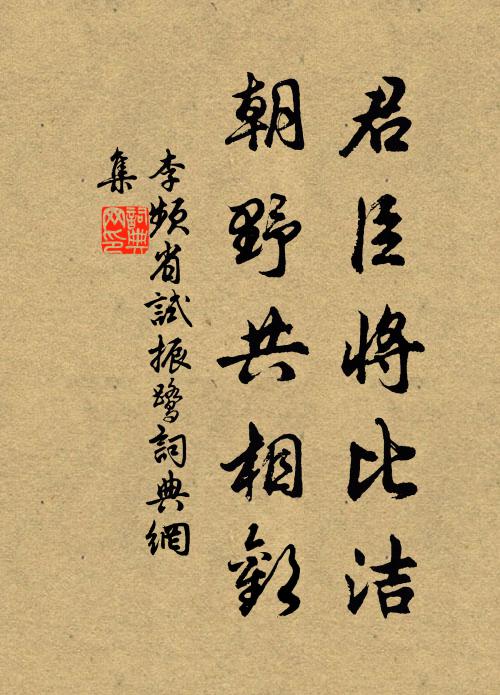 君臣將比洁
朝野共相歡
李頻省試振鷺詞典網
集
詞典
网印